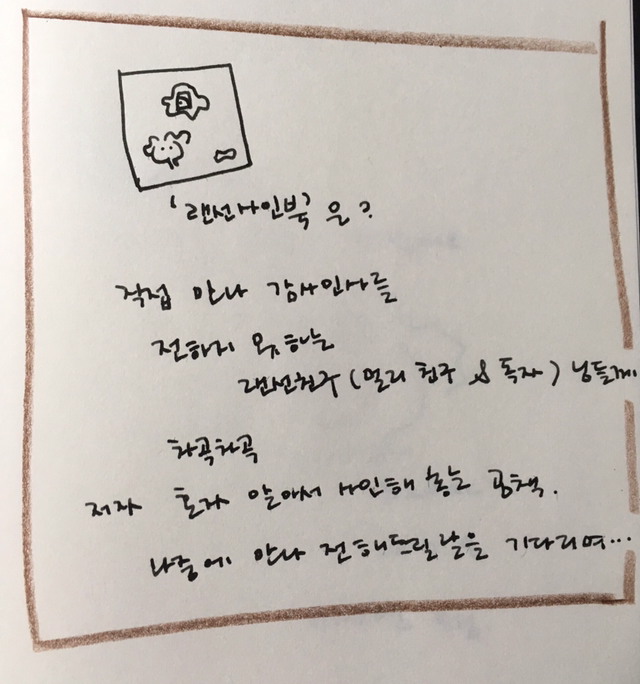 '랜선사인북'은?
직접 만나 감사인사를
전하지 못하는
랜선친구(멀리 친구 & 독자)님들께
차곡차곡
저자 혼자 알아서 사인해 놓는 공책.
나중에 만나 전해드릴 날을 기다리며...